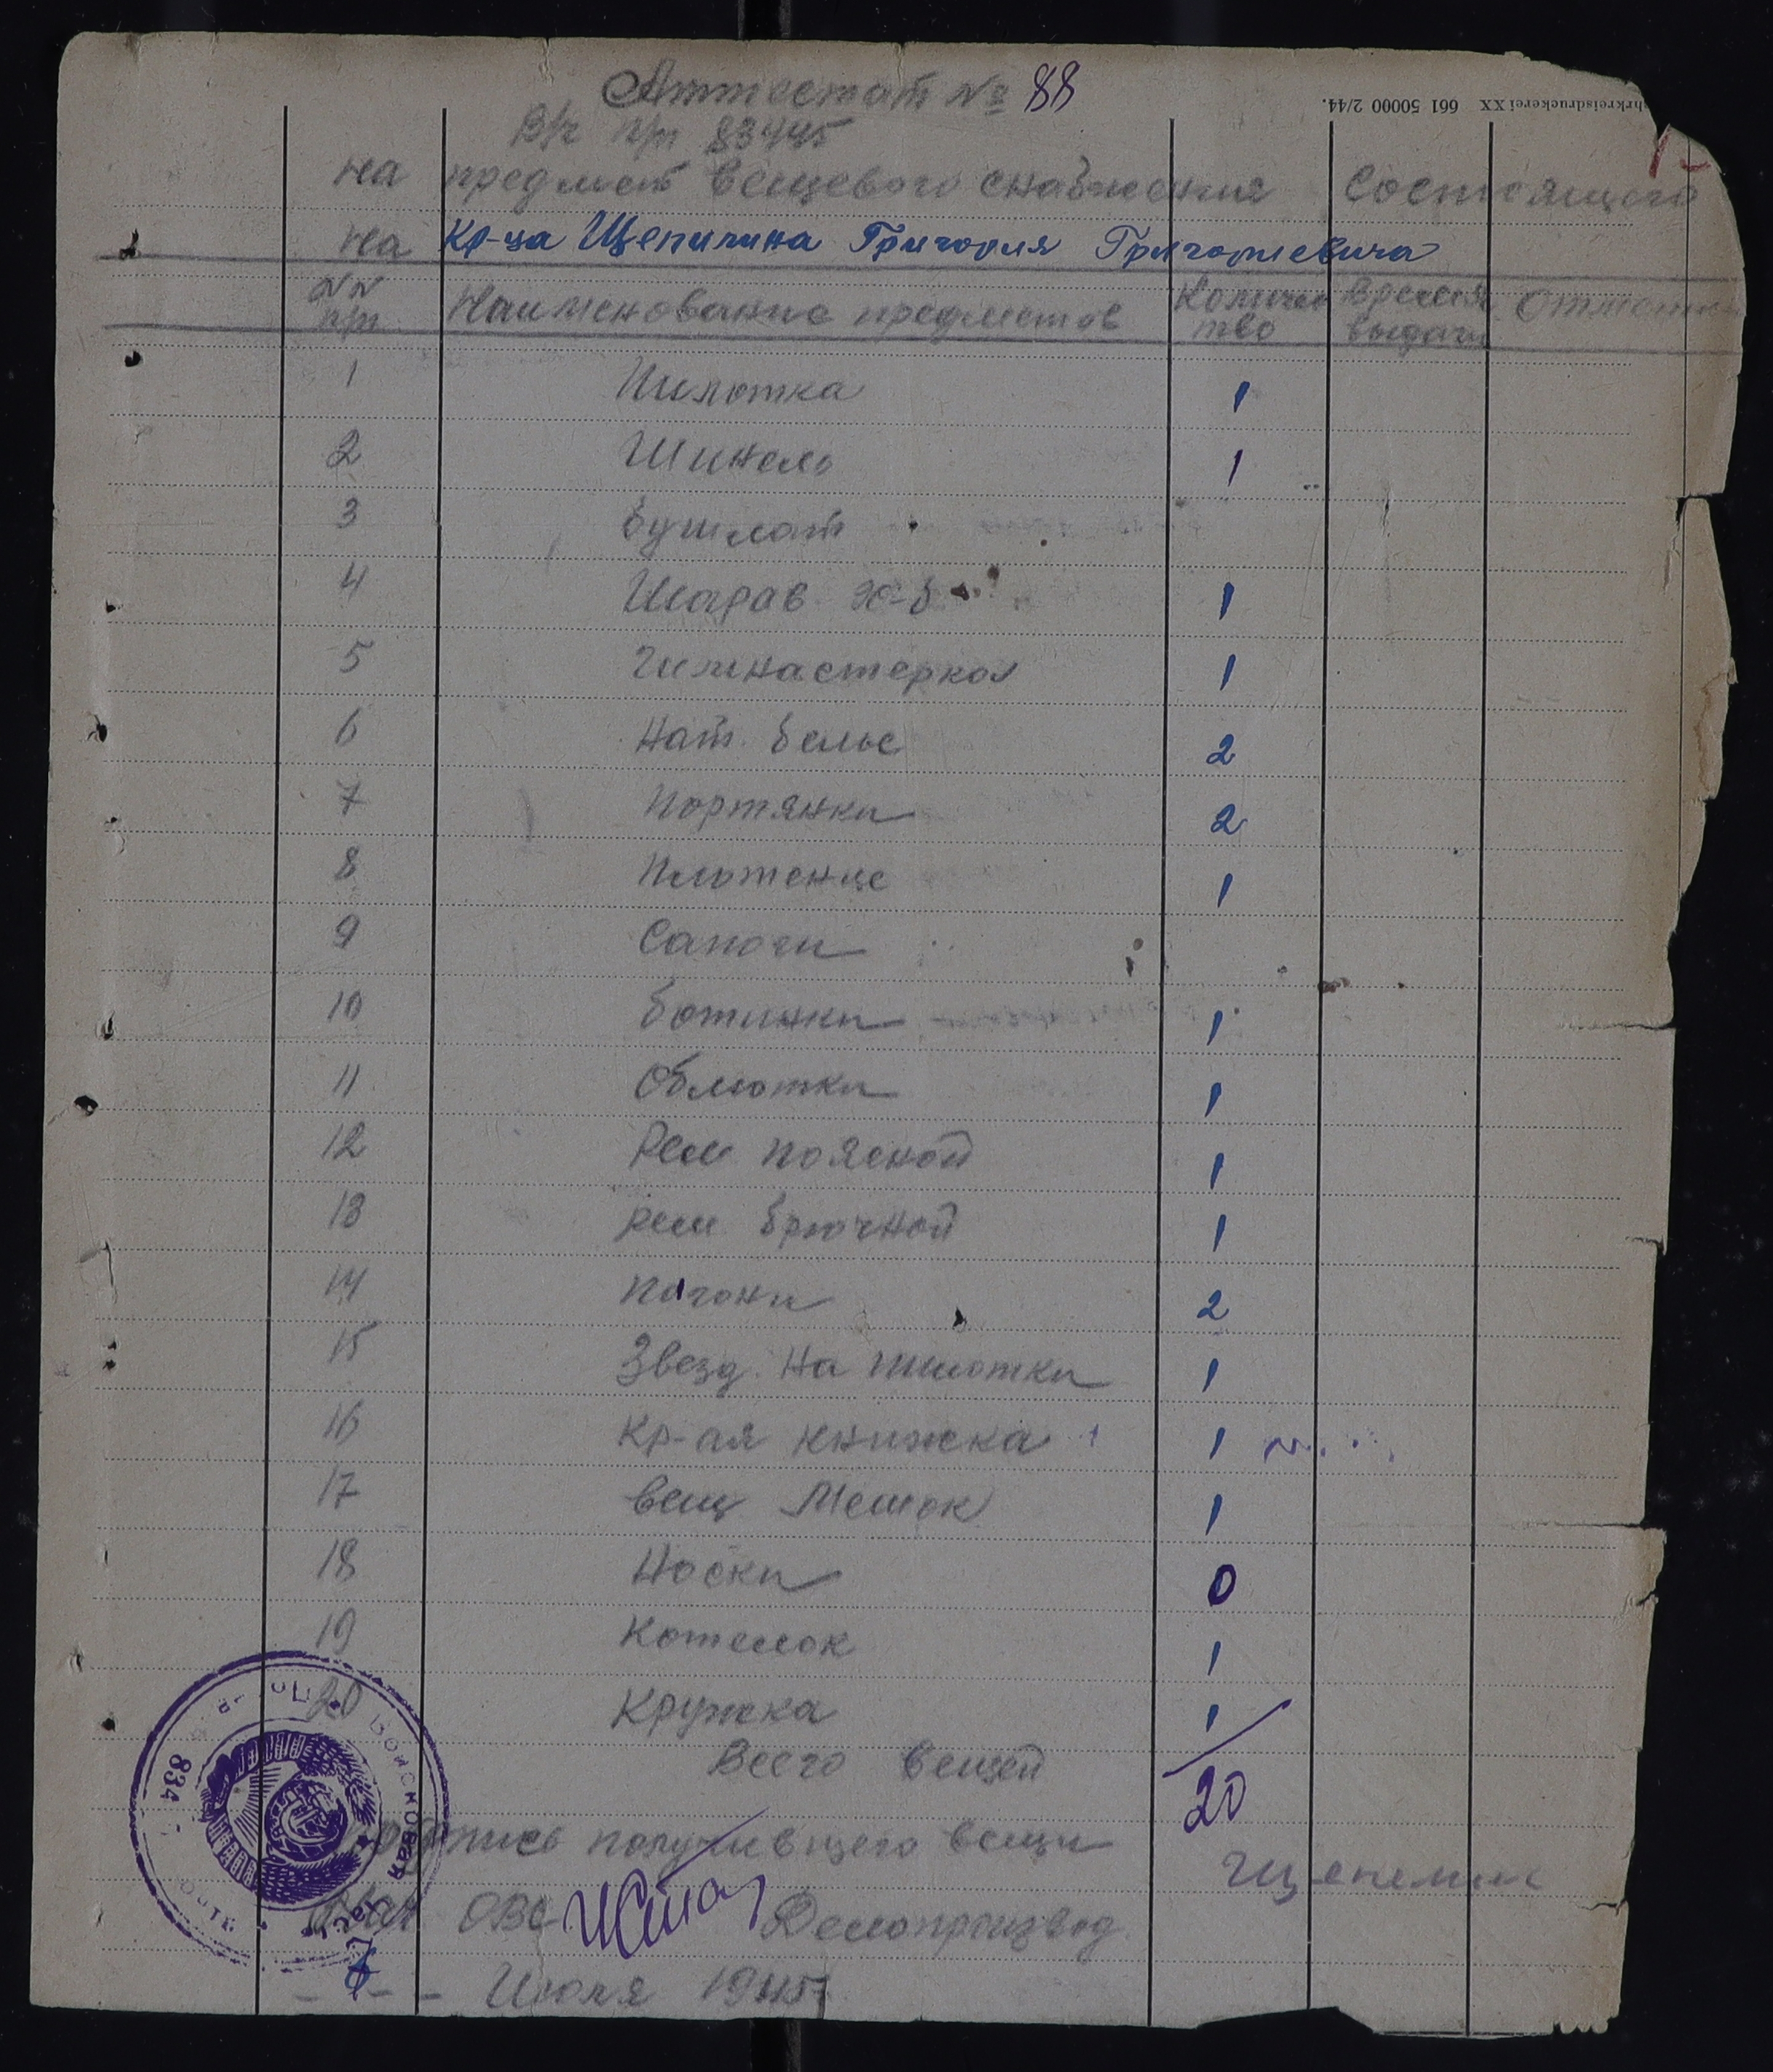 hrkreisdruckerei XX 661 50000 2/44.
Аттестат № 88
В/ч п/п 83445
на предмет вещевого снабжения состоящего
на Кр-ца Щепилина Григория Григорьевича
№№ п/п Наименование предметов Количество время выдачи Отметки
1 Пилотка 1
2 Шинель 1
3 Бушлат
4 Шарав х-б 1
5 Гимнастерка 1
6 Нат. белье 2
7 Портянки 2
8 Плотенце 1
9 Сапоги
10 Ботинки 1
11 Обмотки 1
12 Рем поясной 1
13 Рем брючной 1
14 Погоны 2
15 Звезд. на пилотки 1
16 Кр-ая книжка 1
17 Вещ мешок 1
18 Носки 0
19 Котелок 1
20 Кружка 1
Всего вещей 20
Подпись получившего вещи
Нач ОВС Делопроизвод.
Июля 1945
Войсковая часть
834